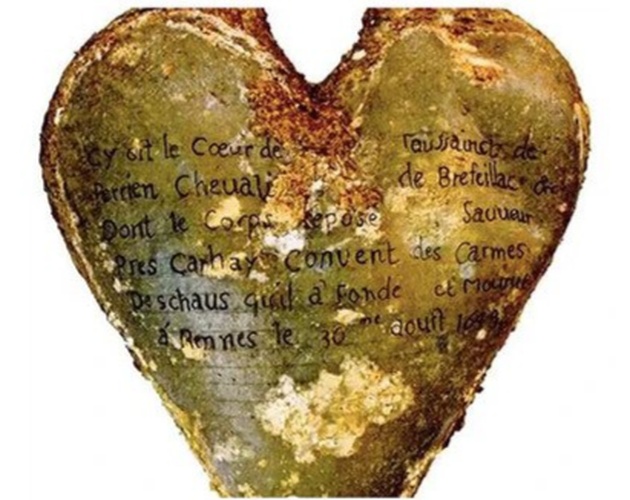 Cy git le Coeur de Taussainct de
Perrien Chevali de Brefeillac
Dont le Corps Repose Sauveur
Pres Carhay Convent des Carmes
Deschaus quil a Fondé et Mourut
á Rennes le 30 me aoust 1649